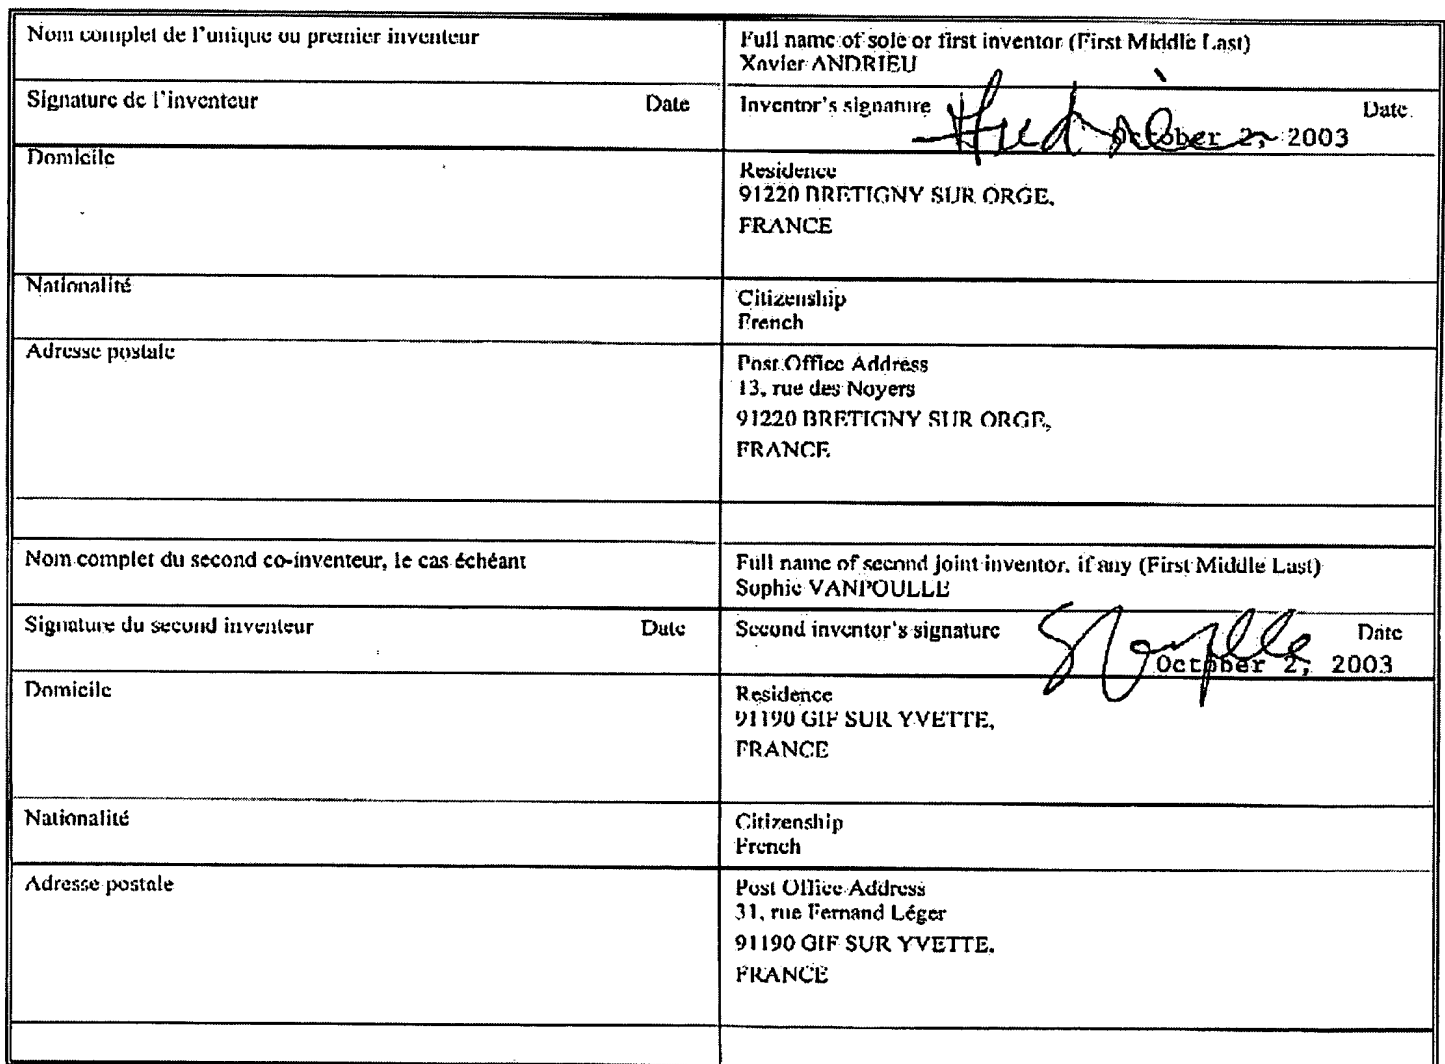 Nom complet de l'unique ou premier inventeur
Full name of sole or first inventor (First Middle Last)
Xavier ANDRIEU
Signature de l'inventeur Date
Inventor's signature Date
October 2, 2003
Domicile
Residence
91220 BRETIGNY SUR ORGE,
FRANCE
Nationalité
Citizenship
French
Adresse postale
Post Office Address
13, rue des Noyers
91220 BRETIGNY SUR ORGE,
FRANCE
Nom complet du second co-inventeur, le cas échéant
Full name of second joint inventor, if any (First Middle Last)
Sophie VANPOULLE
Signature du second inventeur Date
Second inventor's signature Date
October 2, 2003
Domicile
Residence
91190 GIF SUR YVETTE,
FRANCE
Nationalité
Citizenship
French
Adresse postale
Post Office Address
31, rue Fernand Léger
91190 GIF SUR YVETTE,
FRANCE